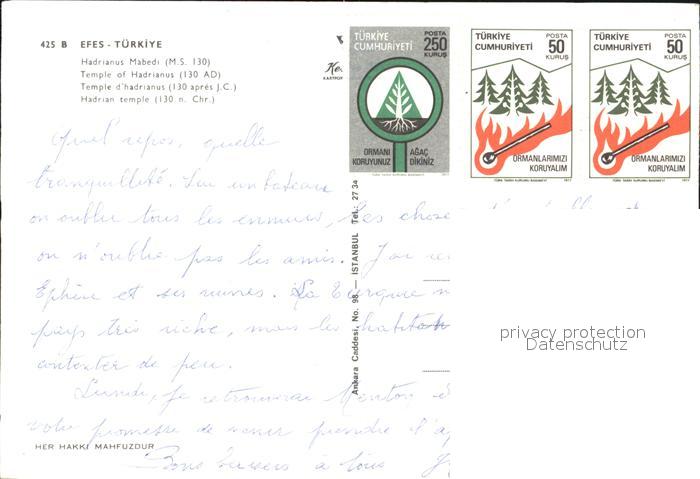 425 B EFES - TÜRKİYE
Hadrianus Mabedi (M.S. 130)
Temple of Hadrianus (130 AD)
Temple d'hadrianus (130 aprés J.C.)
Hadrian temple (130 n. Chr.)
TÜRKİYE CUMHURİYETİ POSTA 250 KURUŞ
ORMANI KORUYUNUZ AĞAÇ DİKİNİZ
TÜRKİYE CUMHURİYETİ POSTA 50 KURUŞ
ORMANLARIMIZI KORUYALIM
1977
TÜRKİYE CUMHURİYETİ POSTA 50 KURUŞ
ORMANLARIMIZI KORUYALIM
1977
Quel repos, quelle
tranquilleté. Sur un bateau
on oublie tous les ennuis, les chose
on n'oublie pas les amis. J'ai
Ephèse et ses ruines. La Turquie
pays très riche, mais les habitan
contenter de peu.
Lundi, je retrouverai Menton
votre promesse de venir prendre l'a
Bons baisers à tous
Ankara Caddesi, No. 98. — ISTANBUL Tel.: 27 34
HER HAKKI MAHFUZDUR
privacy protection
Datenschutz